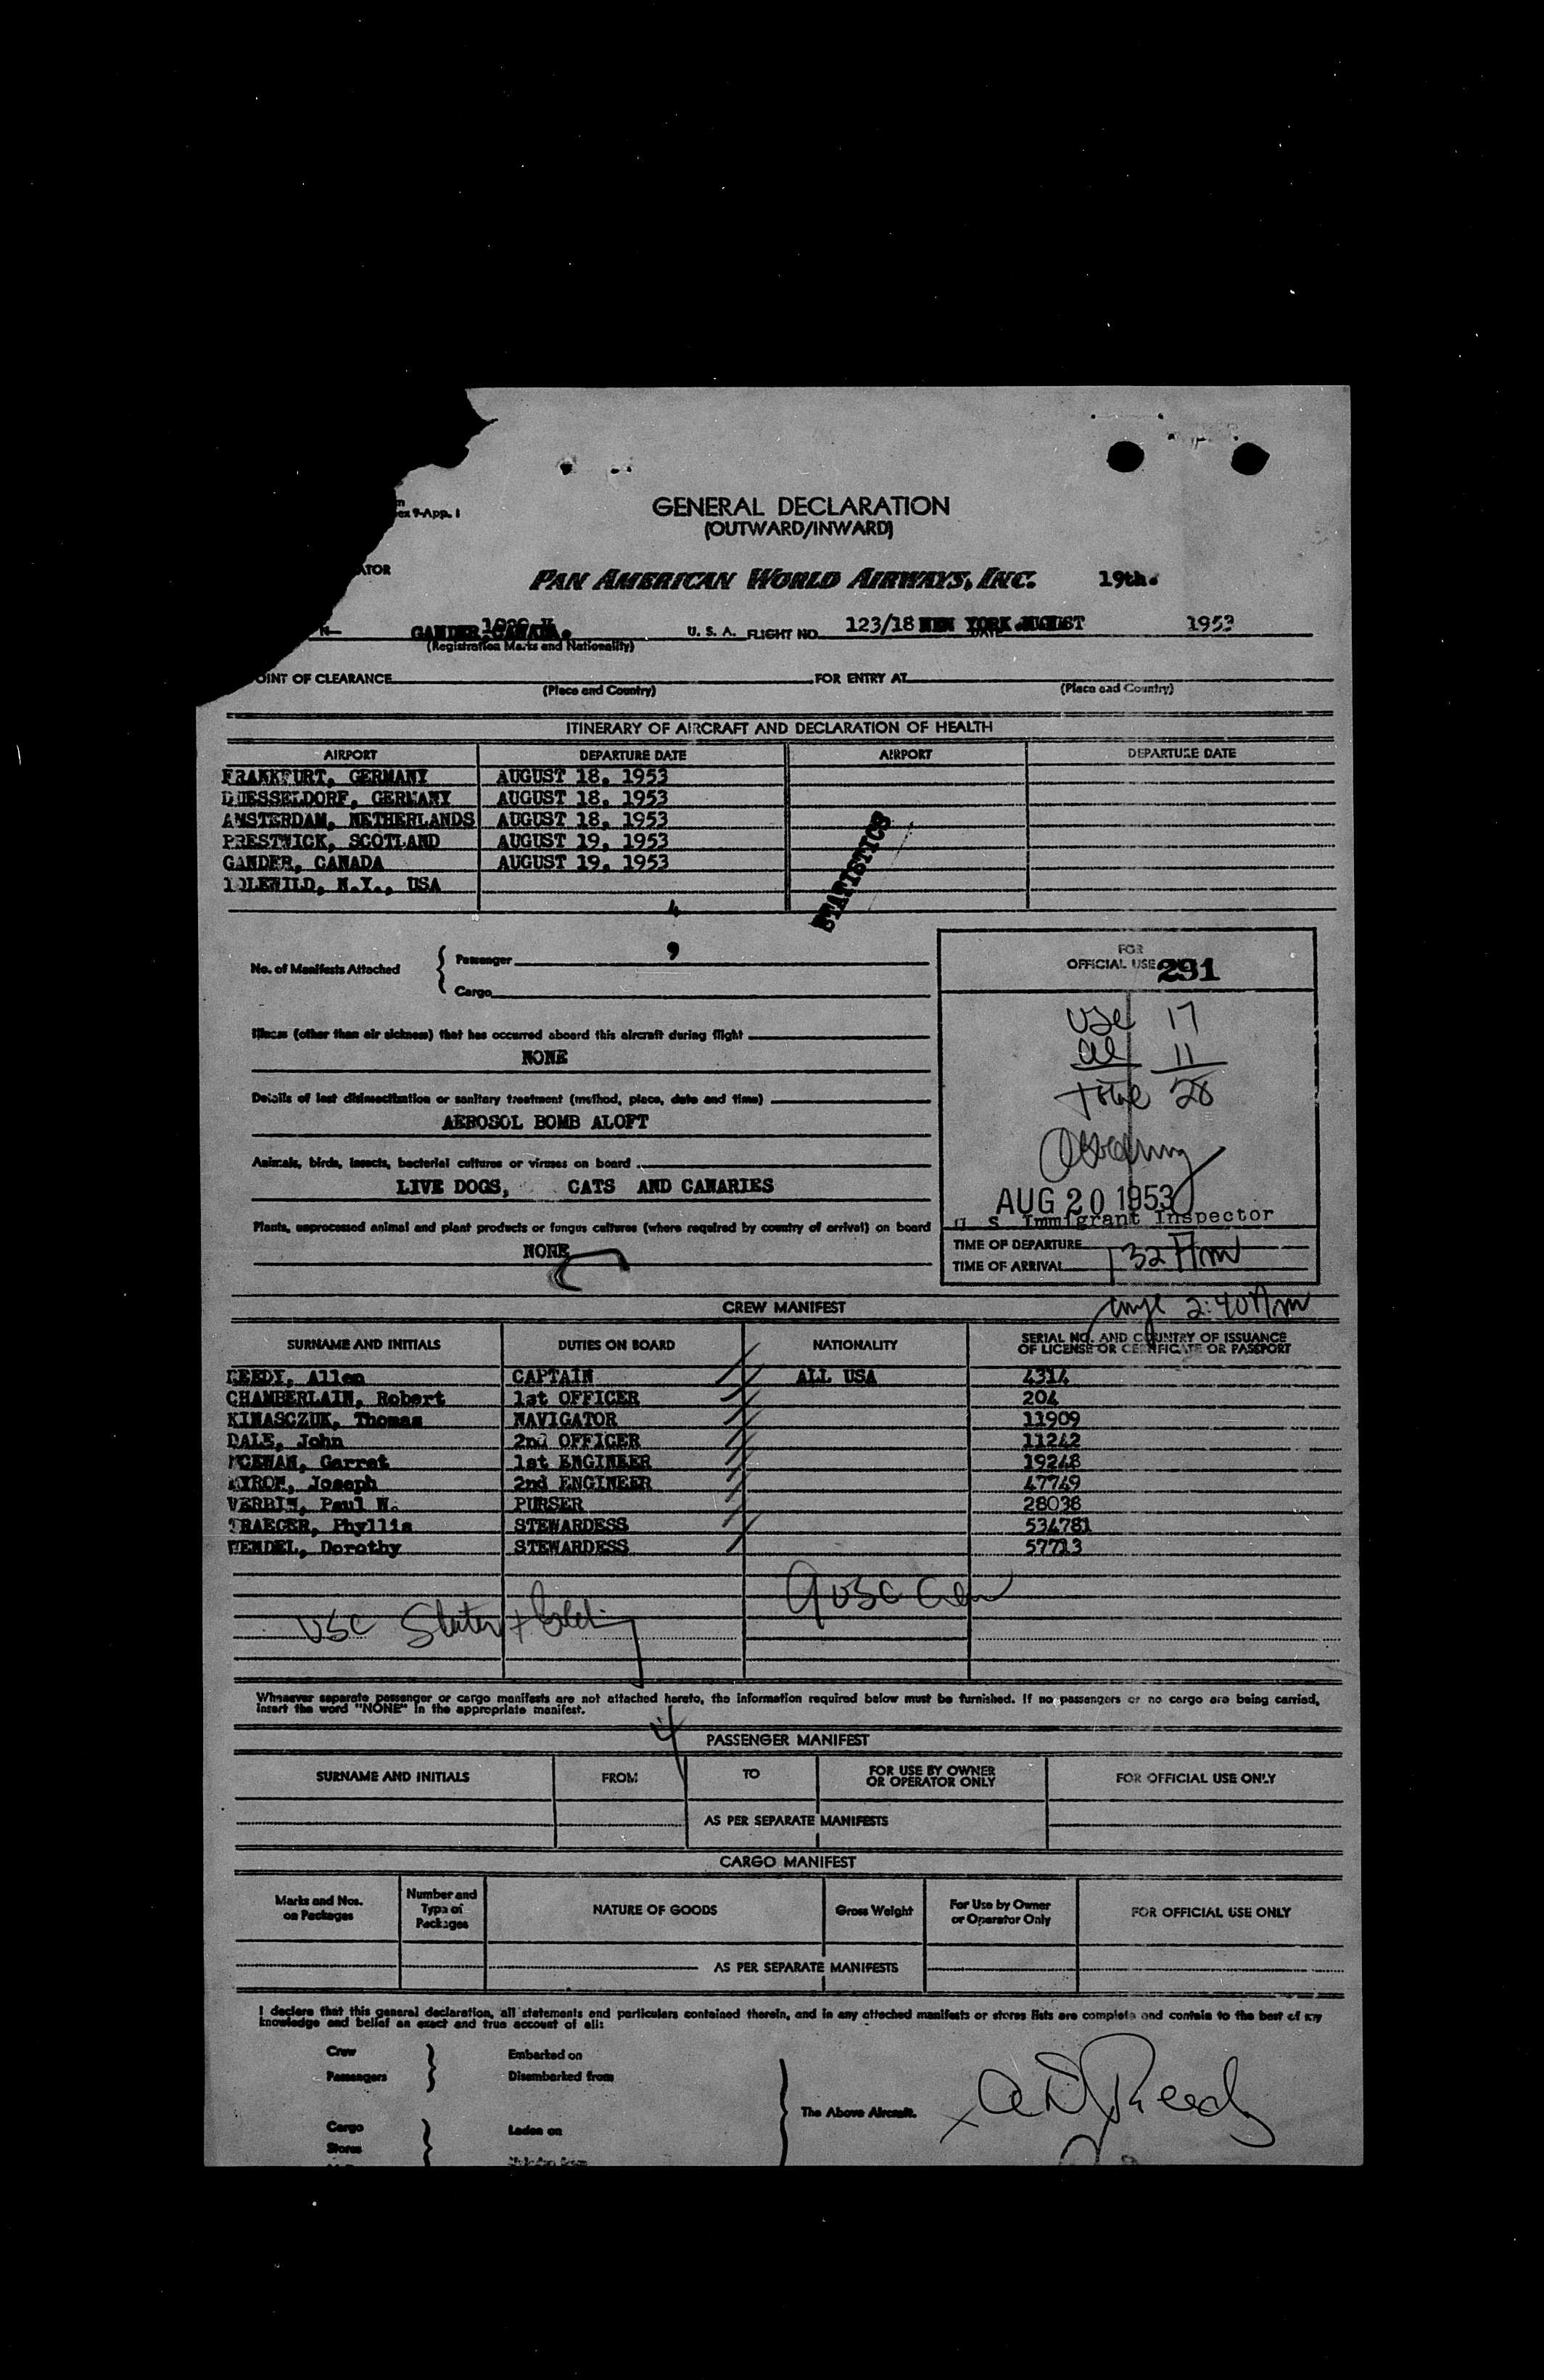 ex 9-App. 1
GENERAL DECLARATION
(OUTWARD/INWARD)
ATOR
PAN AMERICAN WORLD AIRWAYS, INC. 19th.
N— GANDER, CANADA. U. S. A. FLIGHT NO. 123/18 NEW YORK AUGUST 1953
(Registration Marks and Nationality)
OINT OF CLEARANCE FOR ENTRY AT
(Place and Country) (Place and Country)
ITINERARY OF AIRCRAFT AND DECLARATION OF HEALTH
AIRPORT DEPARTURE DATE AIRPORT DEPARTURE DATE
FRANKFURT, GERMANY AUGUST 18, 1953
DUESSELDORF, GERMANY AUGUST 18, 1953
AMSTERDAM, NETHERLANDS AUGUST 18, 1953
PRESTWICK, SCOTLAND AUGUST 19, 1953
GANDER, CANADA AUGUST 19, 1953
IDLEWILD, N.Y., USA
STATISTICS
4
No. of Manifests Attached { Passenger
Cargo
FOR
OFFICIAL USE 291
Illness (other than air sickness) that has occurred aboard this aircraft during flight
NONE
Details of last disinsectization or sanitary treatment (method, place, date and time)
AEROSOL BOMB ALOFT
Animals, birds, insects, bacterial cultures or viruses on board
LIVE DOGS, CATS AND CANARIES
Plants, unprocessed animal and plant products or fungus cultures (where required by country of arrival) on board
NONE
USC 17
al 11
Total 28
AUG 20 1953
U S Immigrant Inspector
TIME OF DEPARTURE
TIME OF ARRIVAL 132 Am
2:40 Am
CREW MANIFEST
SURNAME AND INITIALS DUTIES ON BOARD NATIONALITY SERIAL NO. AND COUNTRY OF ISSUANCE
OF LICENSE OR CERTIFICATE OR PASSPORT
REEDY, Allen CAPTAIN ALL USA 4314
CHAMBERLAIN, Robert 1st OFFICER 204
KINASCZUK, Thomas NAVIGATOR 11909
DALE, John 2nd OFFICER 11242
Garret 1st ENGINEER 19248
Joseph 2nd ENGINEER 47749
VERBIN, Paul N. PURSER 28038
TRAEGER, Phyllis STEWARDESS 534781
Dorothy STEWARDESS 57713
9 USC Crew
USC Slater +
Whenever separate passenger or cargo manifests are not attached hereto, the information required below must be furnished. If no passengers or no cargo are being carried,
insert the word "NONE" in the appropriate manifest.
4
PASSENGER MANIFEST
SURNAME AND INITIALS FROM TO FOR USE BY OWNER
OR OPERATOR ONLY FOR OFFICIAL USE ONLY
AS PER SEPARATE MANIFESTS
CARGO MANIFEST
Marks and Nos.
on Packages Number and
Type of
Packages NATURE OF GOODS Gross Weight For Use by Owner
or Operator Only FOR OFFICIAL USE ONLY
AS PER SEPARATE MANIFESTS
I declare that this general declaration, all statements and particulars contained therein, and in any attached manifests or stores lists are complete and contain to the best of my
knowledge and belief an exact and true account of all:
Crew Embarked on
Passengers Disembarked from
The Above Aircraft. x A D Reedy
Cargo Laden on
Stores